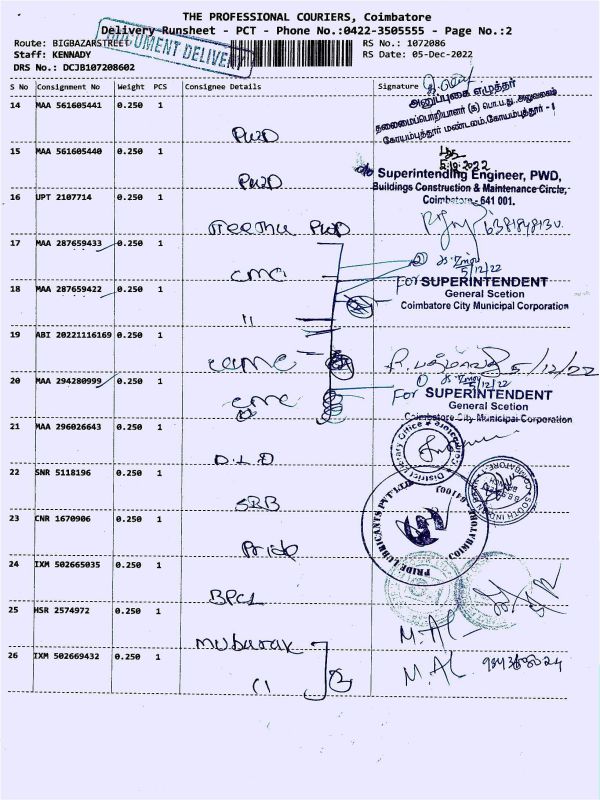 THE PROFESSIONAL COURIERS, Coimbatore
Delivery Runsheet - PCT - Phone No.:0422-3505555 - Page No.:2
DOCUMENT DELIVERY
Route: BIGBAZARSTREET RS No.: 1072086
Staff: KENNADY RS Date: 05-Dec-2022
DRS No.: DCJB107208602
S No Consignment No Weight PCS Consignee Details Signature
14 MAA 561605441 0.250 1 PWD
அனுப்புகை எழுத்தர்
தலைமைப்பொறியாளர் (க) பொ.ப.து. அலுவலகம்
கோயம்புத்தூர் மண்டலம், கோயம்புத்தூர் - 1
15 MAA 561605440 0.250 1 PWD
Superintending Engineer, PWD,
Buildings Construction & Maintenance Circle,
Coimbatore - 641 001.
16 UPT 2107714 0.250 1 PWD
17 MAA 287659433 0.250 1 CMC
5/12/22
18 MAA 287659422 0.250 1 "
For SUPERINTENDENT
General Scetion
Coimbatore City Municipal Corporation
19 ABI 20221116169 0.250 1 CCMC
5/12/22
20 MAA 294280999 0.250 1 CMC
5/12/22
For SUPERINTENDENT
General Scetion
Coimbatore City Municipal Corporation
21 MAA 296026643 0.250 1 D.L.O
District Library Office Coimbatore
22 SNR 5118196 0.250 1 SRB
23 CNR 1670906 0.250 1 Pride
PRIDE LUBRICANTS PVT LTD COIMBATORE - 641001
24 IXM 502665035 0.250 1 BPCL
25 HSR 2574972 0.250 1 Mubarak
M. AL
26 IXM 502669432 0.250 1 "
M. AL